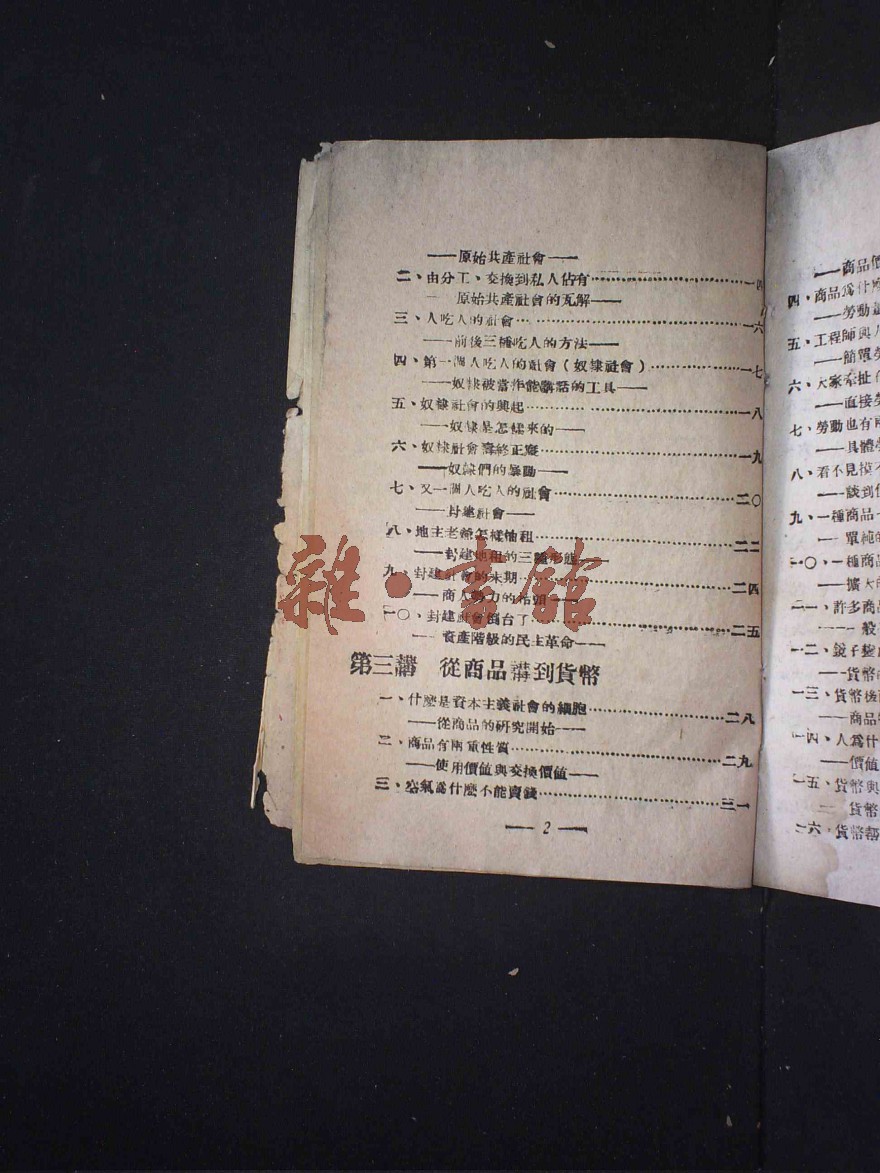 ——原始共產社會——
二、由分工、交換到私人佔有……………………一四
一 原始共產社會的瓦解——
三、人吃人的社會……………………一六
——前後三種吃人的方法——
四、第一個人吃人的社會(奴隸社會)……………一七
——奴隸被當作能講話的工具——
五、奴隸社會的興起……………………一八
——奴隸是怎樣來的——
六、奴隸社會壽終正寢……………………一九
——奴隸們的暴動——
七、又一個人吃人的社會……………………二〇
——封建社會——
八、地主老爺怎樣抽租……………………二二
——封建地租的三種形態——
九、封建社會的末期……………………二四
——商人勢力的抬頭——
一〇、封建社會倒台了……………………二五
——資產階級的民主革命——
第三講 從商品講到貨幣
一、什麼是資本主義社會的細胞……………………二八
——從商品的研究開始——
二、商品有兩重性質……………………二九
——使用價值與交換價值——
三、空氣爲什麼不能賣錢……………………三一
—— 2 ——
——商品價
四、商品爲什麼
——勞動
五、工程師與
——簡單勞
六、大家牽扯
——直接勞
七、勞動也有兩
——具體勞
八、看不見摸不
——談到價
九、一種商品
一 單純的
一〇、一種商品
——擴大的
一一、許多商品
——一般
一二、鏡子
——貨幣
一三、貨幣後
——商品
一四、人爲什
——價值
一五、貨幣與
二 貨幣
一六、貨幣幫
雜·書館